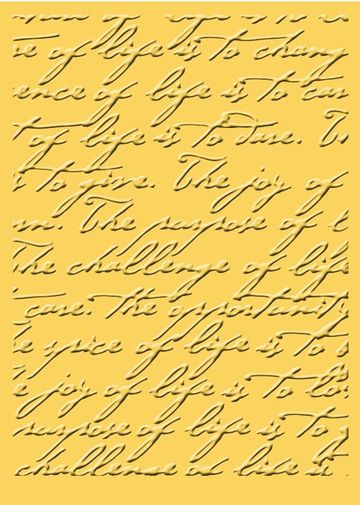 of life is to
of life is to chang
ence of life is to car
of life is to Dare. T
to give. The joy of
The purpose of l
The challenge of life
care. The opportunity
e spice of life is to
e joy of life is to lo
purpose of life is to
challenge of life is